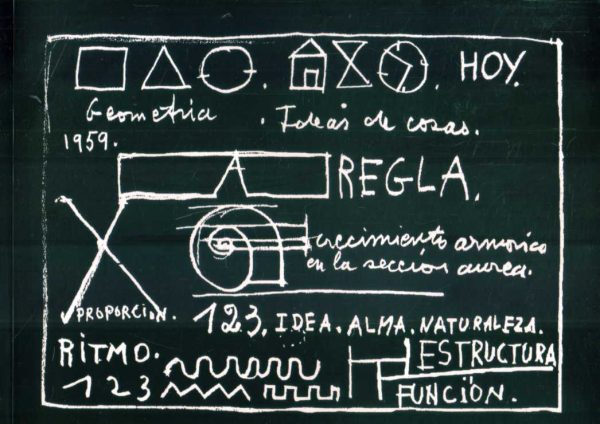 HOY.
Geometria . Ideas de cosas.
1959.
REGLA.
crecimiento armonico
en la sección aurea.
PROPORCION.
123. IDEA. ALMA. NATURALEZA.
RITMO.
ESTRUCTURA
123
FUNCIÓN.